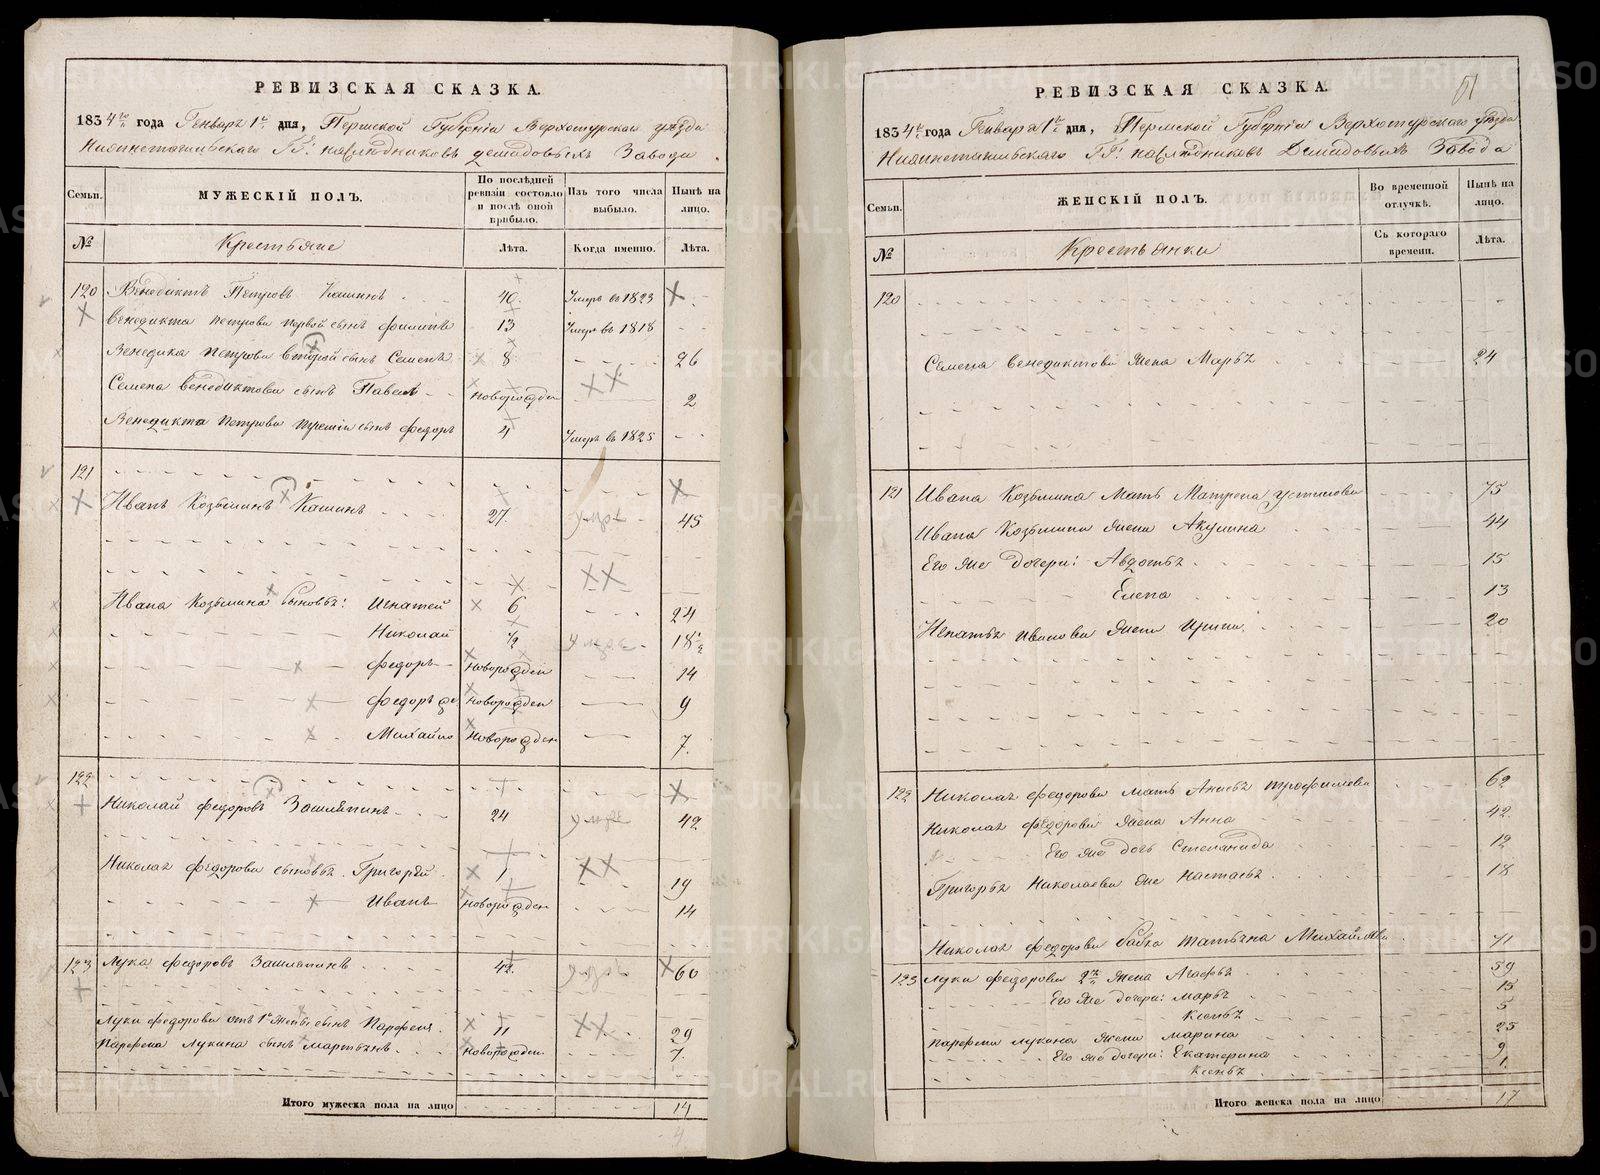 РЕВИЗСКАЯ СКАЗКА.
1834 го года Генваря 1 дня, Пермской Губернiи Верхотурскаго уѣзда
Нижнетагильскаго ГГ: наслѣдниковъ Демидовыхъ Завода.
Семьи.
МУЖЕСКIЙ ПОЛЪ.
По послѣдней ревизiи состояло и послѣ оной прибыло.
Изъ того числа выбыло.
Нынѣ на лицо.
№
Крестьяне
Лѣта.
Когда именно.
Лѣта.
120 Венедиктъ Петровъ Кашинъ 40. Умеръ въ 1823
Венедикта Петрова первой сынъ Филипъ 13 Умеръ въ 1818
Венедика Петрова второй сынъ Семенъ 8 26
Семена Венедиктова сынъ Павелъ новорожден 2
Венедикта Петрова третiй сынъ Федоръ 4 Умеръ въ 1825
121
Иванъ Козьминъ Кашинъ 27. умре 45
Ивана Козьмина сыновья: Игнатей 6 24
Николай ½ умре 18½
Федоръ новорожден 14
Федоръ же новорожден 9
Михайло новорожден 7.
122
Николай Федоровъ Зашляпинъ 24 умре 42
Николая Федорова сыновья. Григорей 1 19
Иванъ новорожден 14
123 Лука Федоровъ Зашляпинъ 42 умре 60
Луки Федорова отъ 1й жены сынъ Парфенъ 11 29
Парфена Лукина сынъ Мартынъ новорожден 7.
Итого мужеска пола на лицо 14
РЕВИЗСКАЯ СКАЗКА.
61
1834 года Генваря 1 дня, Пермской Губернiи Верхотурскаго уѣзда
Нижнетагильскаго ГГ: наслѣдниковъ Демидовыхъ Завода
Семьи.
ЖЕНСКIЙ ПОЛЪ.
Во временной отлучкѣ.
Нынѣ на лицо.
№
Крестьянки
Съ котораго времени.
Лѣта.
120
Семена Венедиктова жена Марья 24
121 Ивана Козьмина мать Матрена Устинова 75
Ивана Козьмина жена Акулина 44
Его же дочери: Авдотья 15
Елена 13
Игнатья Иванова жена Ирина 20
122 Николая Федорова мать Анисья Трофимова 62
Николая Федорова жена Анна 42
Его же дочь Степанида 12
Григорья Николаева же Настасья 18
Николая Федорова бабка Татьяна Михайлова 71
123 Луки Федорова 2я жена Агафья 59
Его же дочери: Марья 15
Ксенья 5
Парфена Лукина жена Марина 25
Его же дочери: Екатерина 9
Ксенья 1
Итого женска пола на лицо 17
METRIKI.GASO-URAL.RU